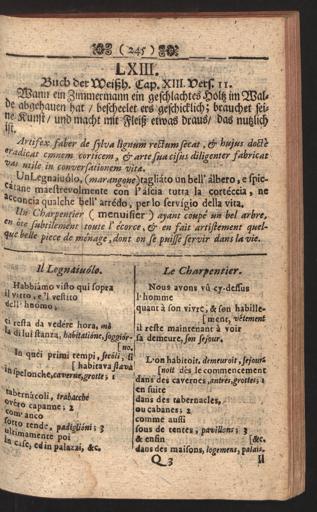 (245)
LXIII.
Buch der Weißh. Cap. XIII. Vers. 11.
Wann ein Zimmermann ein geschlachtes Holtz im Wal-
de abgehauen hat / beschelet ers geschicklich; brauchet sei-
ne Kunst / und macht mit Fleiß etwas draus / das nutzlich
ist.
Artifex faber de sylva lignum rectum secat, & hujus doctè
eradicat omnem corticem, & arte sua usus diligenter fabricat
vas utile in conversationem vitæ.
Un Legnaiuólo, (marangone) tagliáto un bell' álbero, e spic-
cátane maestrevolmente con l'áscia tutta la cortéccia, ne
acconcia qualche bell' arrédo, per lo servígio della vita.
Un Charpentier (menuisier) ayant coupé un bel arbre,
en ôte subtilement toute l'écorce, & en fait artistement quel-
que belle piece de ménage, dont on se puisse servir dans la vie.
Il Legnaiuólo.
Habbiámo visto qui sopra
il vitto, e'l vestíto
dell' huómo,
ci resta da vedére hora,
la di lui stanza, habitatióne, soggior-
[no.
In quei primi tempi, secóli, si
[habitava stáva
in spelonche, caverne, grotte; 1
tabernácoli, trabacche
overo capanne; 2
com' anco
sotto tende, padiglióni; 3
ultimamente poi
in case, ed in palazzi, &c.
Le Charpentier.
Nous avons vû cy-dessus
l'homme
quant à son vivre, & son habille-
[ment, vêtement
il reste maintenant à voir
sa demeure, son sejour.
L'on habitoit, demeuroit, sejour-
[noit dès le commencement
dans des cavernes, antres, grottes; 1
en suite
dans des tabernacles,
ou cabanes; 2
comme aussi
sous de tentes, pavillons; 3
& enfin [&c.
dans des maisons, logemens, palais.
Q 3